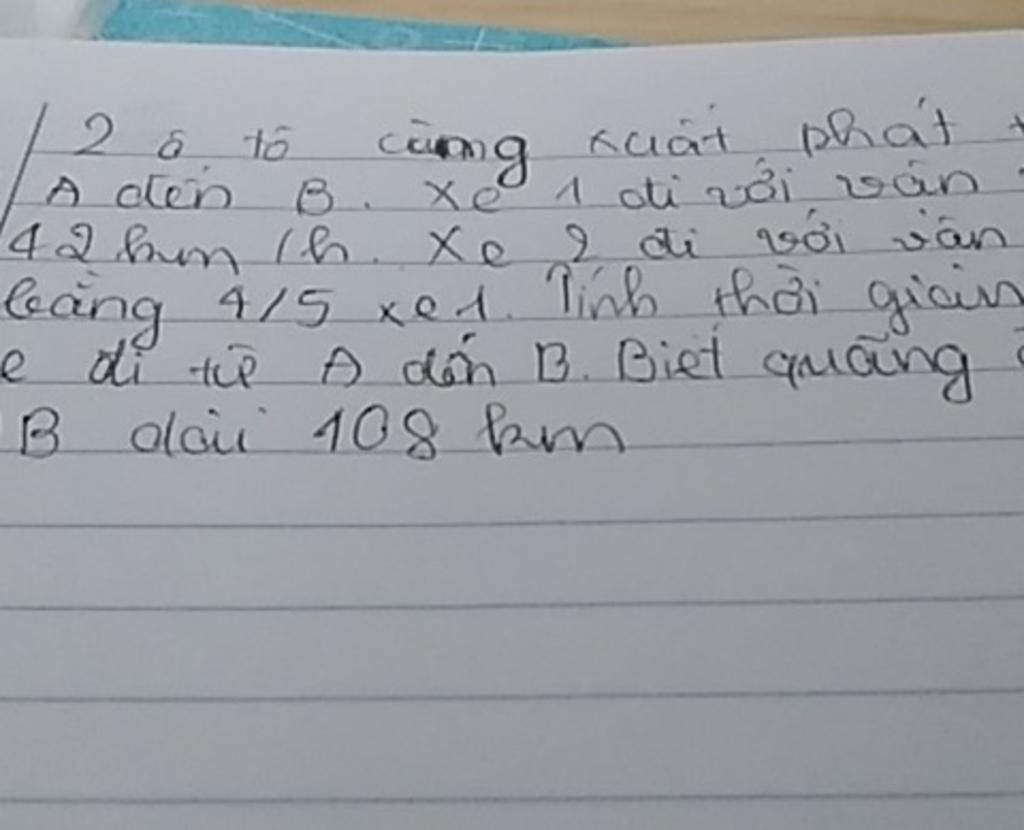 2 ô tô cùng xuất phát t
A đến B. Xe 1 đi với vận
42 km/h. Xe 2 đi với vận
bằng 4/5 xe 1. Tính thời gian
e đi từ A đến B. Biết quãng đ
B dài 108 km